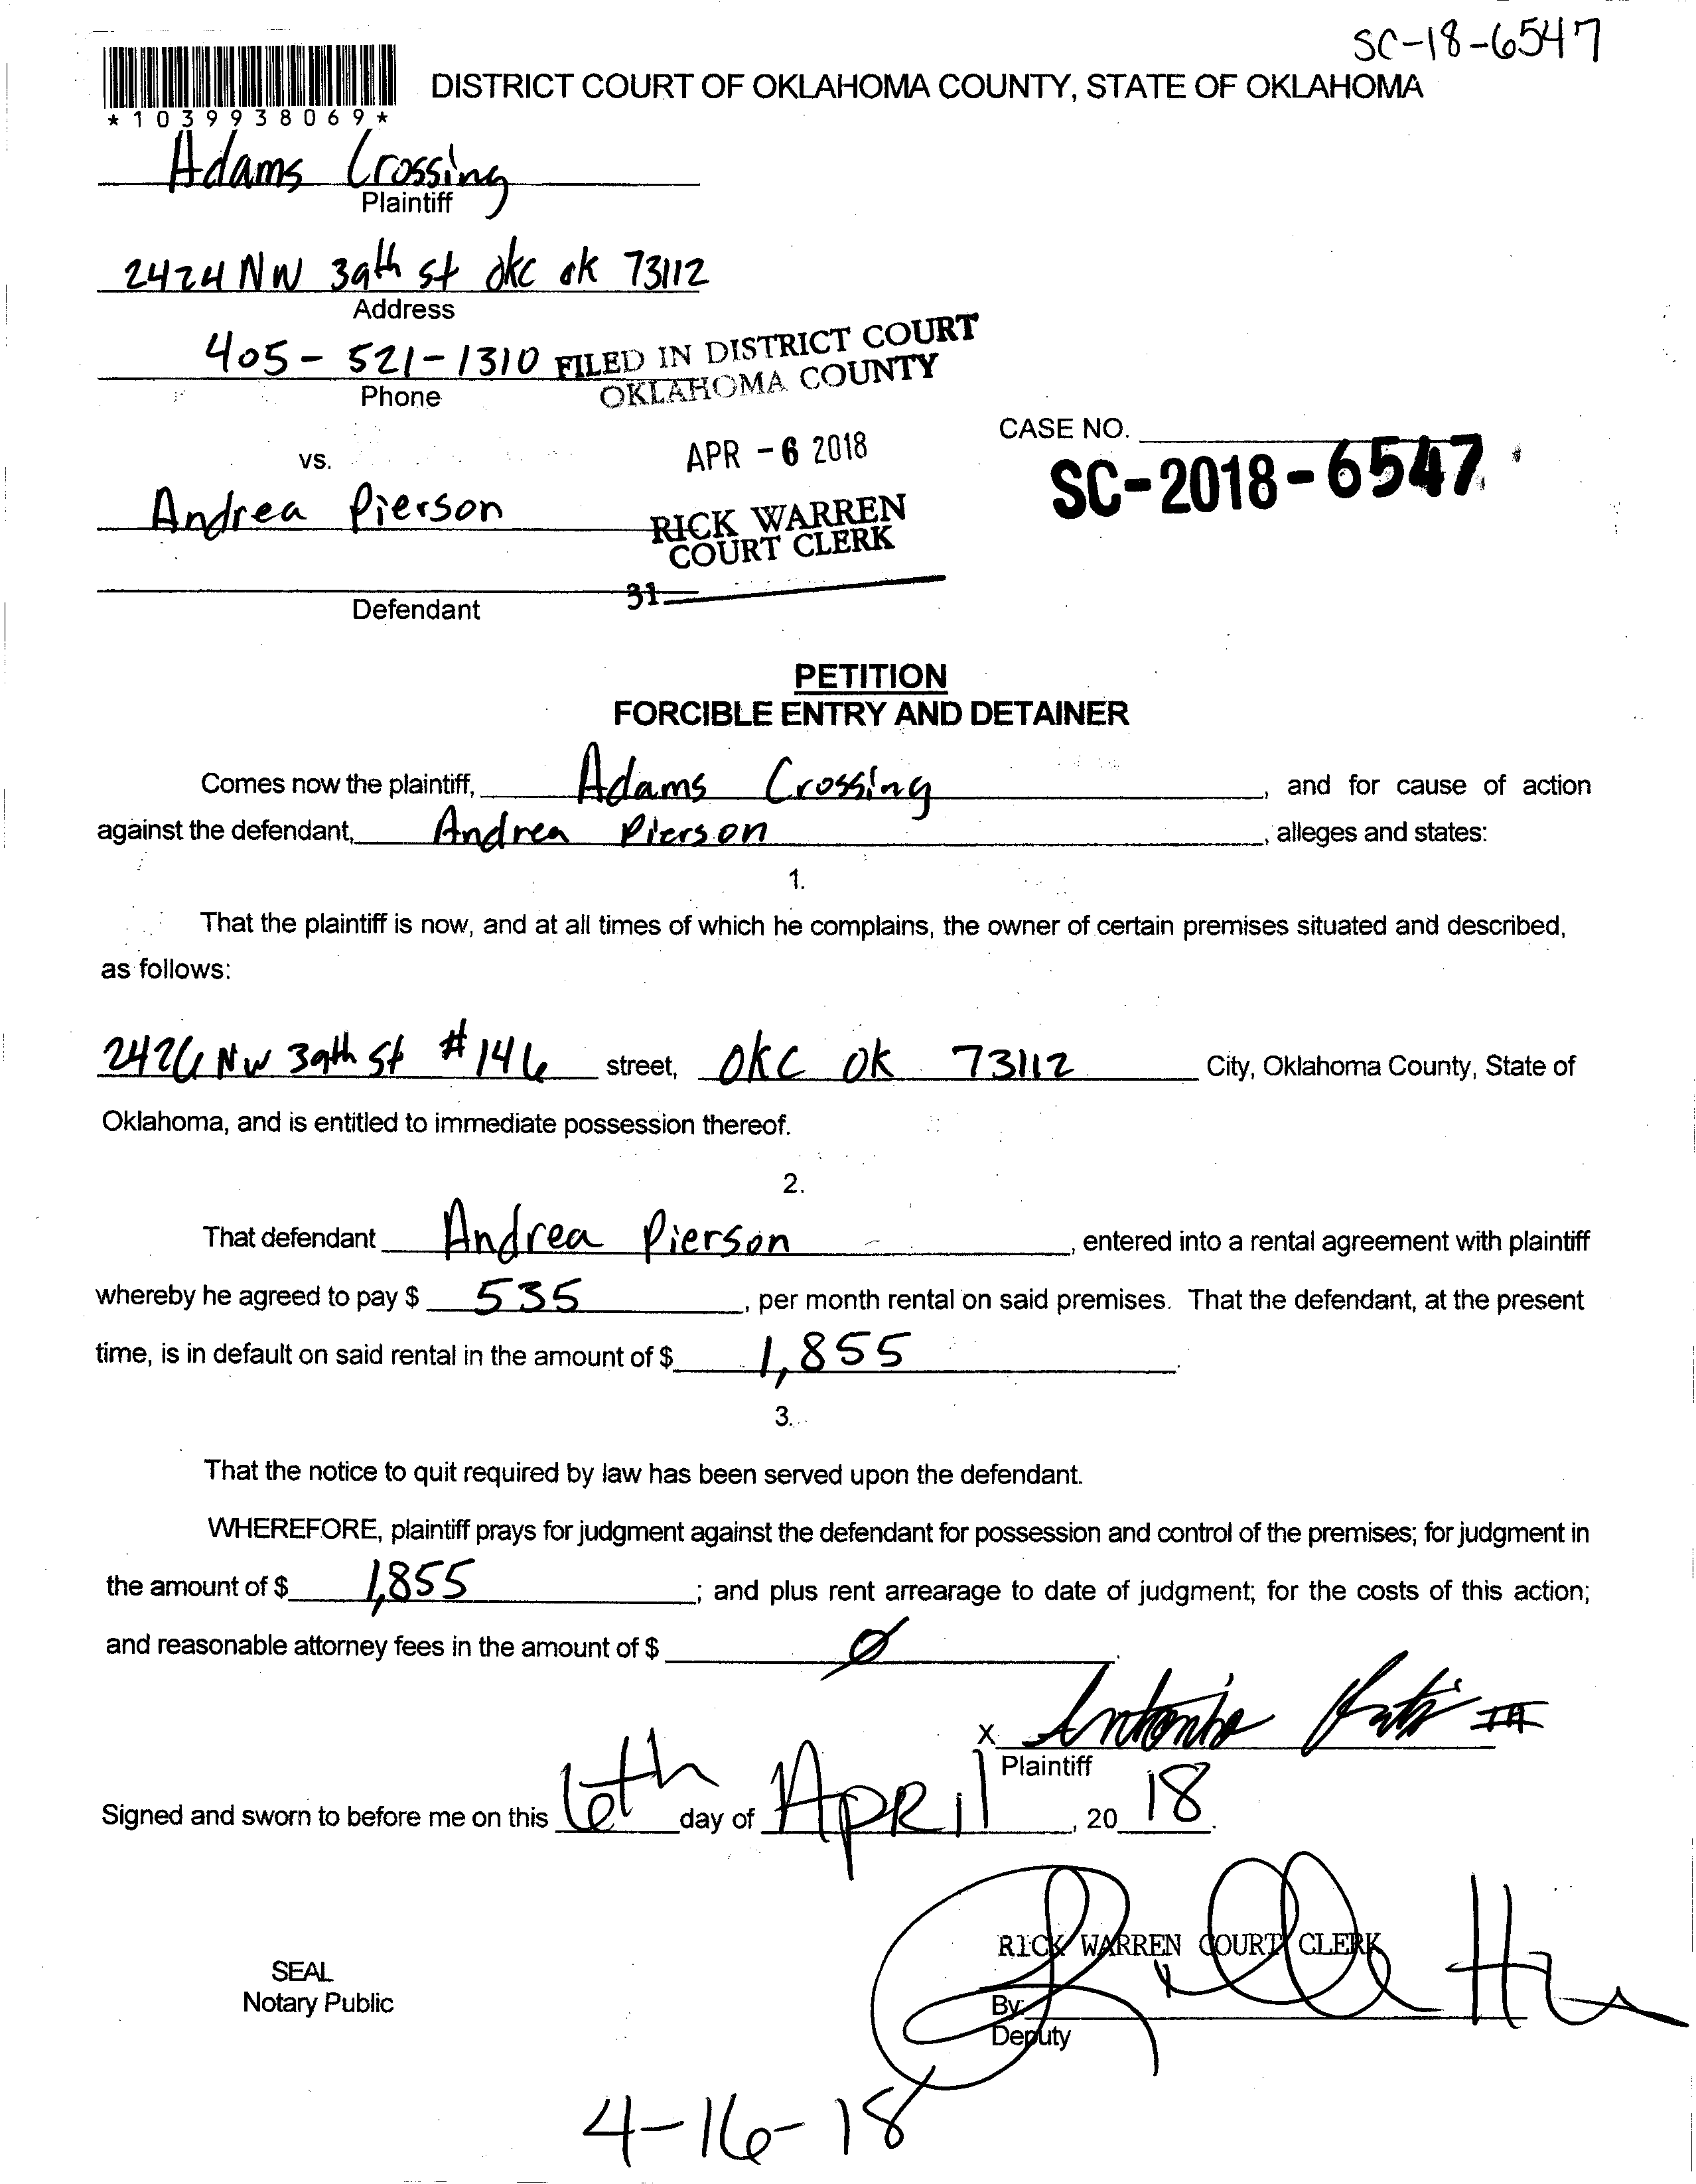 SC-18-6547
DISTRICT COURT OF OKLAHOMA COUNTY, STATE OF OKLAHOMA
*1039938069*
Adams Crossing
Plaintiff
2424 NW 39th St okc ok 73112
Address
405-521-1310
Phone
FILED IN DISTRICT COURT
OKLAHOMA COUNTY
CASE NO.
APR - 6 2018
SC-2018-6547
vs.
Andrea Pierson
RICK WARREN
COURT CLERK
31
Defendant
PETITION
FORCIBLE ENTRY AND DETAINER
Comes now the plaintiff, Adams Crossing, and for cause of action
against the defendant, Andrea Pierson, alleges and states:
1.
That the plaintiff is now, and at all times of which he complains, the owner of certain premises situated and described,
as follows:
NW 39th St #146 street, OKC OK 73112 City, Oklahoma County, State of
Oklahoma, and is entitled to immediate possession thereof.
2.
That defendant Andrea Pierson, entered into a rental agreement with plaintiff
whereby he agreed to pay $ 535, per month rental on said premises. That the defendant, at the present
time, is in default on said rental in the amount of $ 1,855.
3.
That the notice to quit required by law has been served upon the defendant.
WHEREFORE, plaintiff prays for judgment against the defendant for possession and control of the premises; for judgment in
the amount of $ 1,855; and plus rent arrearage to date of judgment; for the costs of this action;
and reasonable attorney fees in the amount of $ Ø.
X Antonio III
Plaintiff
Signed and sworn to before me on this 6th day of April, 20 18.
RICK WARREN COURT CLERK
SEAL
Notary Public
By:
Deputy
4-16-18